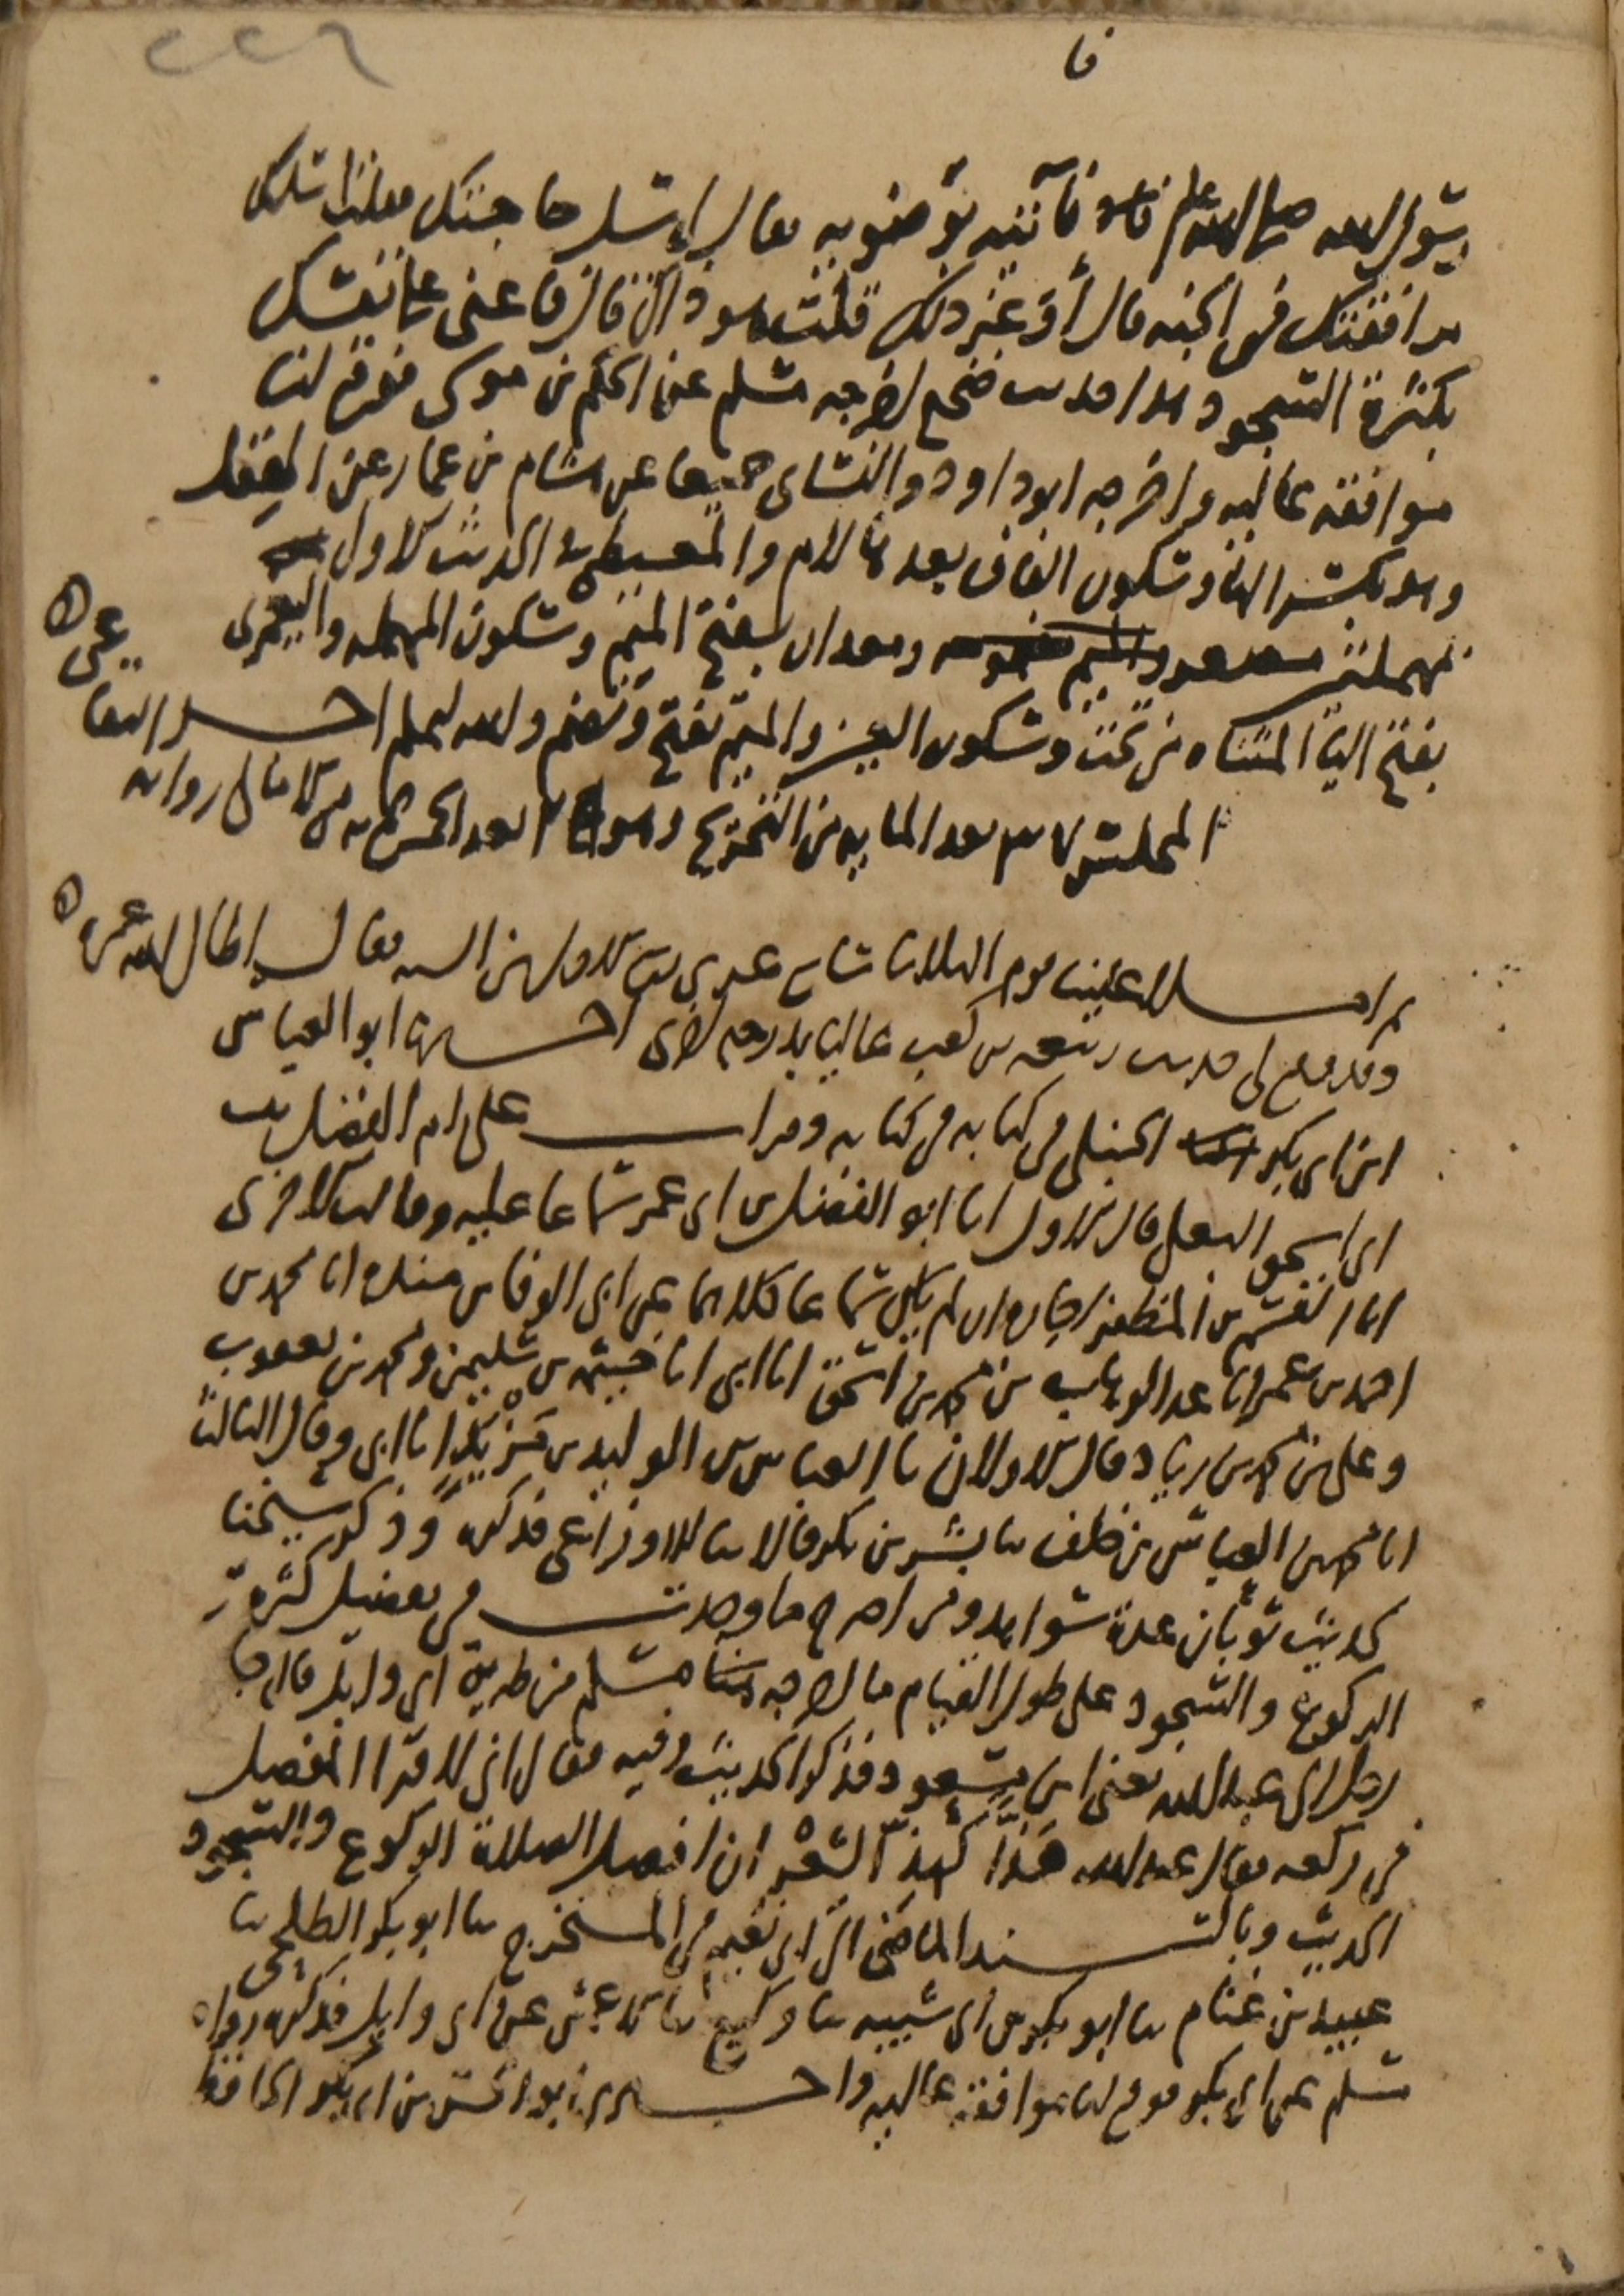 ٢٢٦
رسول الله صلى الله عليه وسلم فآتيه بوضوئه فقال لي سل حاجتك فقلت اسلك
مرافقتك في الجنة قال أو غير ذلك قلت هو ذاك قال فاعني على نفسك
بكثرة السجود هذا حديث صحيح اخرجه مسلم عن الحكم بن موسى فوقع لنا
موافقة عالية واخرجه ابو داود والنسائي جميعا عن هشام بن عمار عن الهقل
وهو بكسر الهاء وسكون القاف بعدها لام والمعيطي في الحديث الاول
بمهملتين ومعدان بفتح الميم وسكون المهملة واليعمري
بفتح الياء المثناة من تحت وسكون العين والميم تفتح وتضم والله اعلم
المجلس بعد المايه من التخريج وهو بعد الخمس مايه من الامالي روايه
ثم املى علينا يوم الثلاثا تاسع عشري الاول من السنة فقال اطال الله عمره
وقد وقع لي حديث ربيعة بن كعب عاليا بدرجة اخرى اخبرنا ابو العباس
ابن ابي بكر الحنبلي في كتابه وقرات على ام الفضل بنت
ابي اسحق البعلي قال الاول انا ابو الفضل بن ابي عمر سماعا عليه وقالت الاخرى
انا القسم بن المظفر اجازة ان لم يكن سماعا كلاهما عن ابي الوفا بن منده انا محمد بن
احمد بن عمر انا عبد الوهاب بن محمد بن اسحق انا ابي انا خيثمة بن سليمن ومحمد بن يعقوب
وعلي بن محمد بن زياد قال الاولان نا العباس بن الوليد بن مزيد انا ابي وقال الثالث
انا محمد بن العباس بن خلف نا بشر بن بكر قالا نا الاوزاعي فذكره وذكر شيخنا
لحديث ثوبان عدة شواهد ومن اصرح ما وجدت في تفضيل كثرة
الركوع والسجود على طول القيام ما اخرجه مسلم من طريق ابي وايل قال جا
رجل الى عبد الله يعني ابن مسعود فذكر الحديث وفيه فقال اني لاقرا المفصل
في ركعه فقال عبد الله هذا كهذ الشعر ان افضل الصلاة الركوع والسجود
الحديث وبالسند الماضي الى ابي نعيم في المستخرج نا ابو بكر الطلحي نا
عبيد بن غنام نا ابو بكر بن ابي شيبه نا وكيع نا الاعمش عن ابي وايل فذكره رواه
مسلم عن ابي بكر فوقع لنا موافقة عالية واخبرني ابو الحسن بن ابي بكر الحافظ